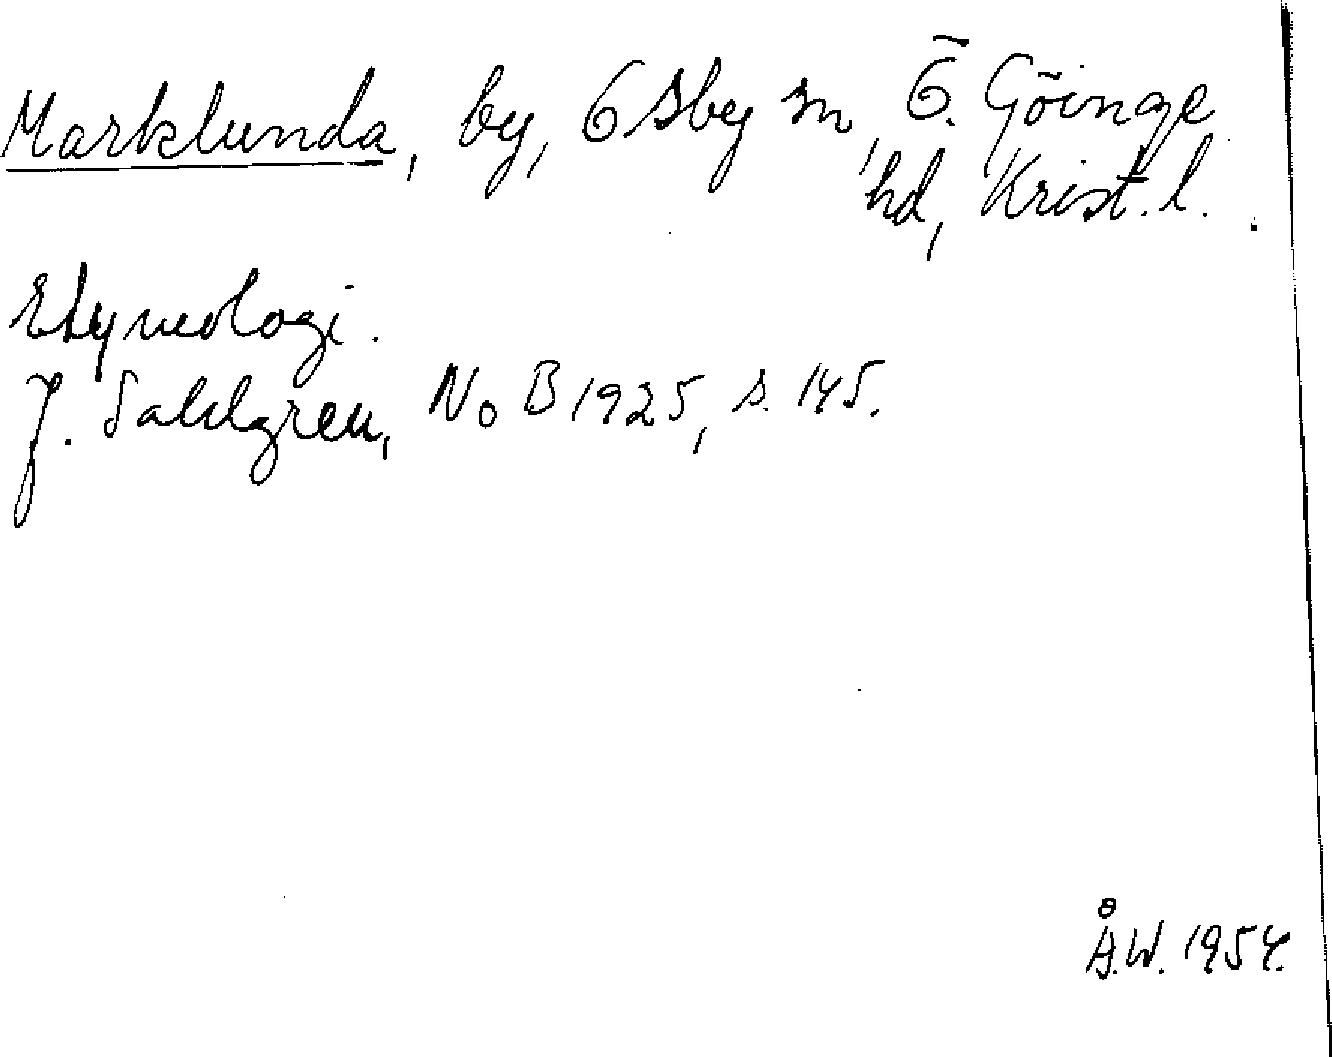 Marklunda, by, Osby sn, Ö. Göinge
hd, Krist. l.
Etymologi.
J. Sahlgren, NoB 1925, s. 145.
Å.W. 1954.